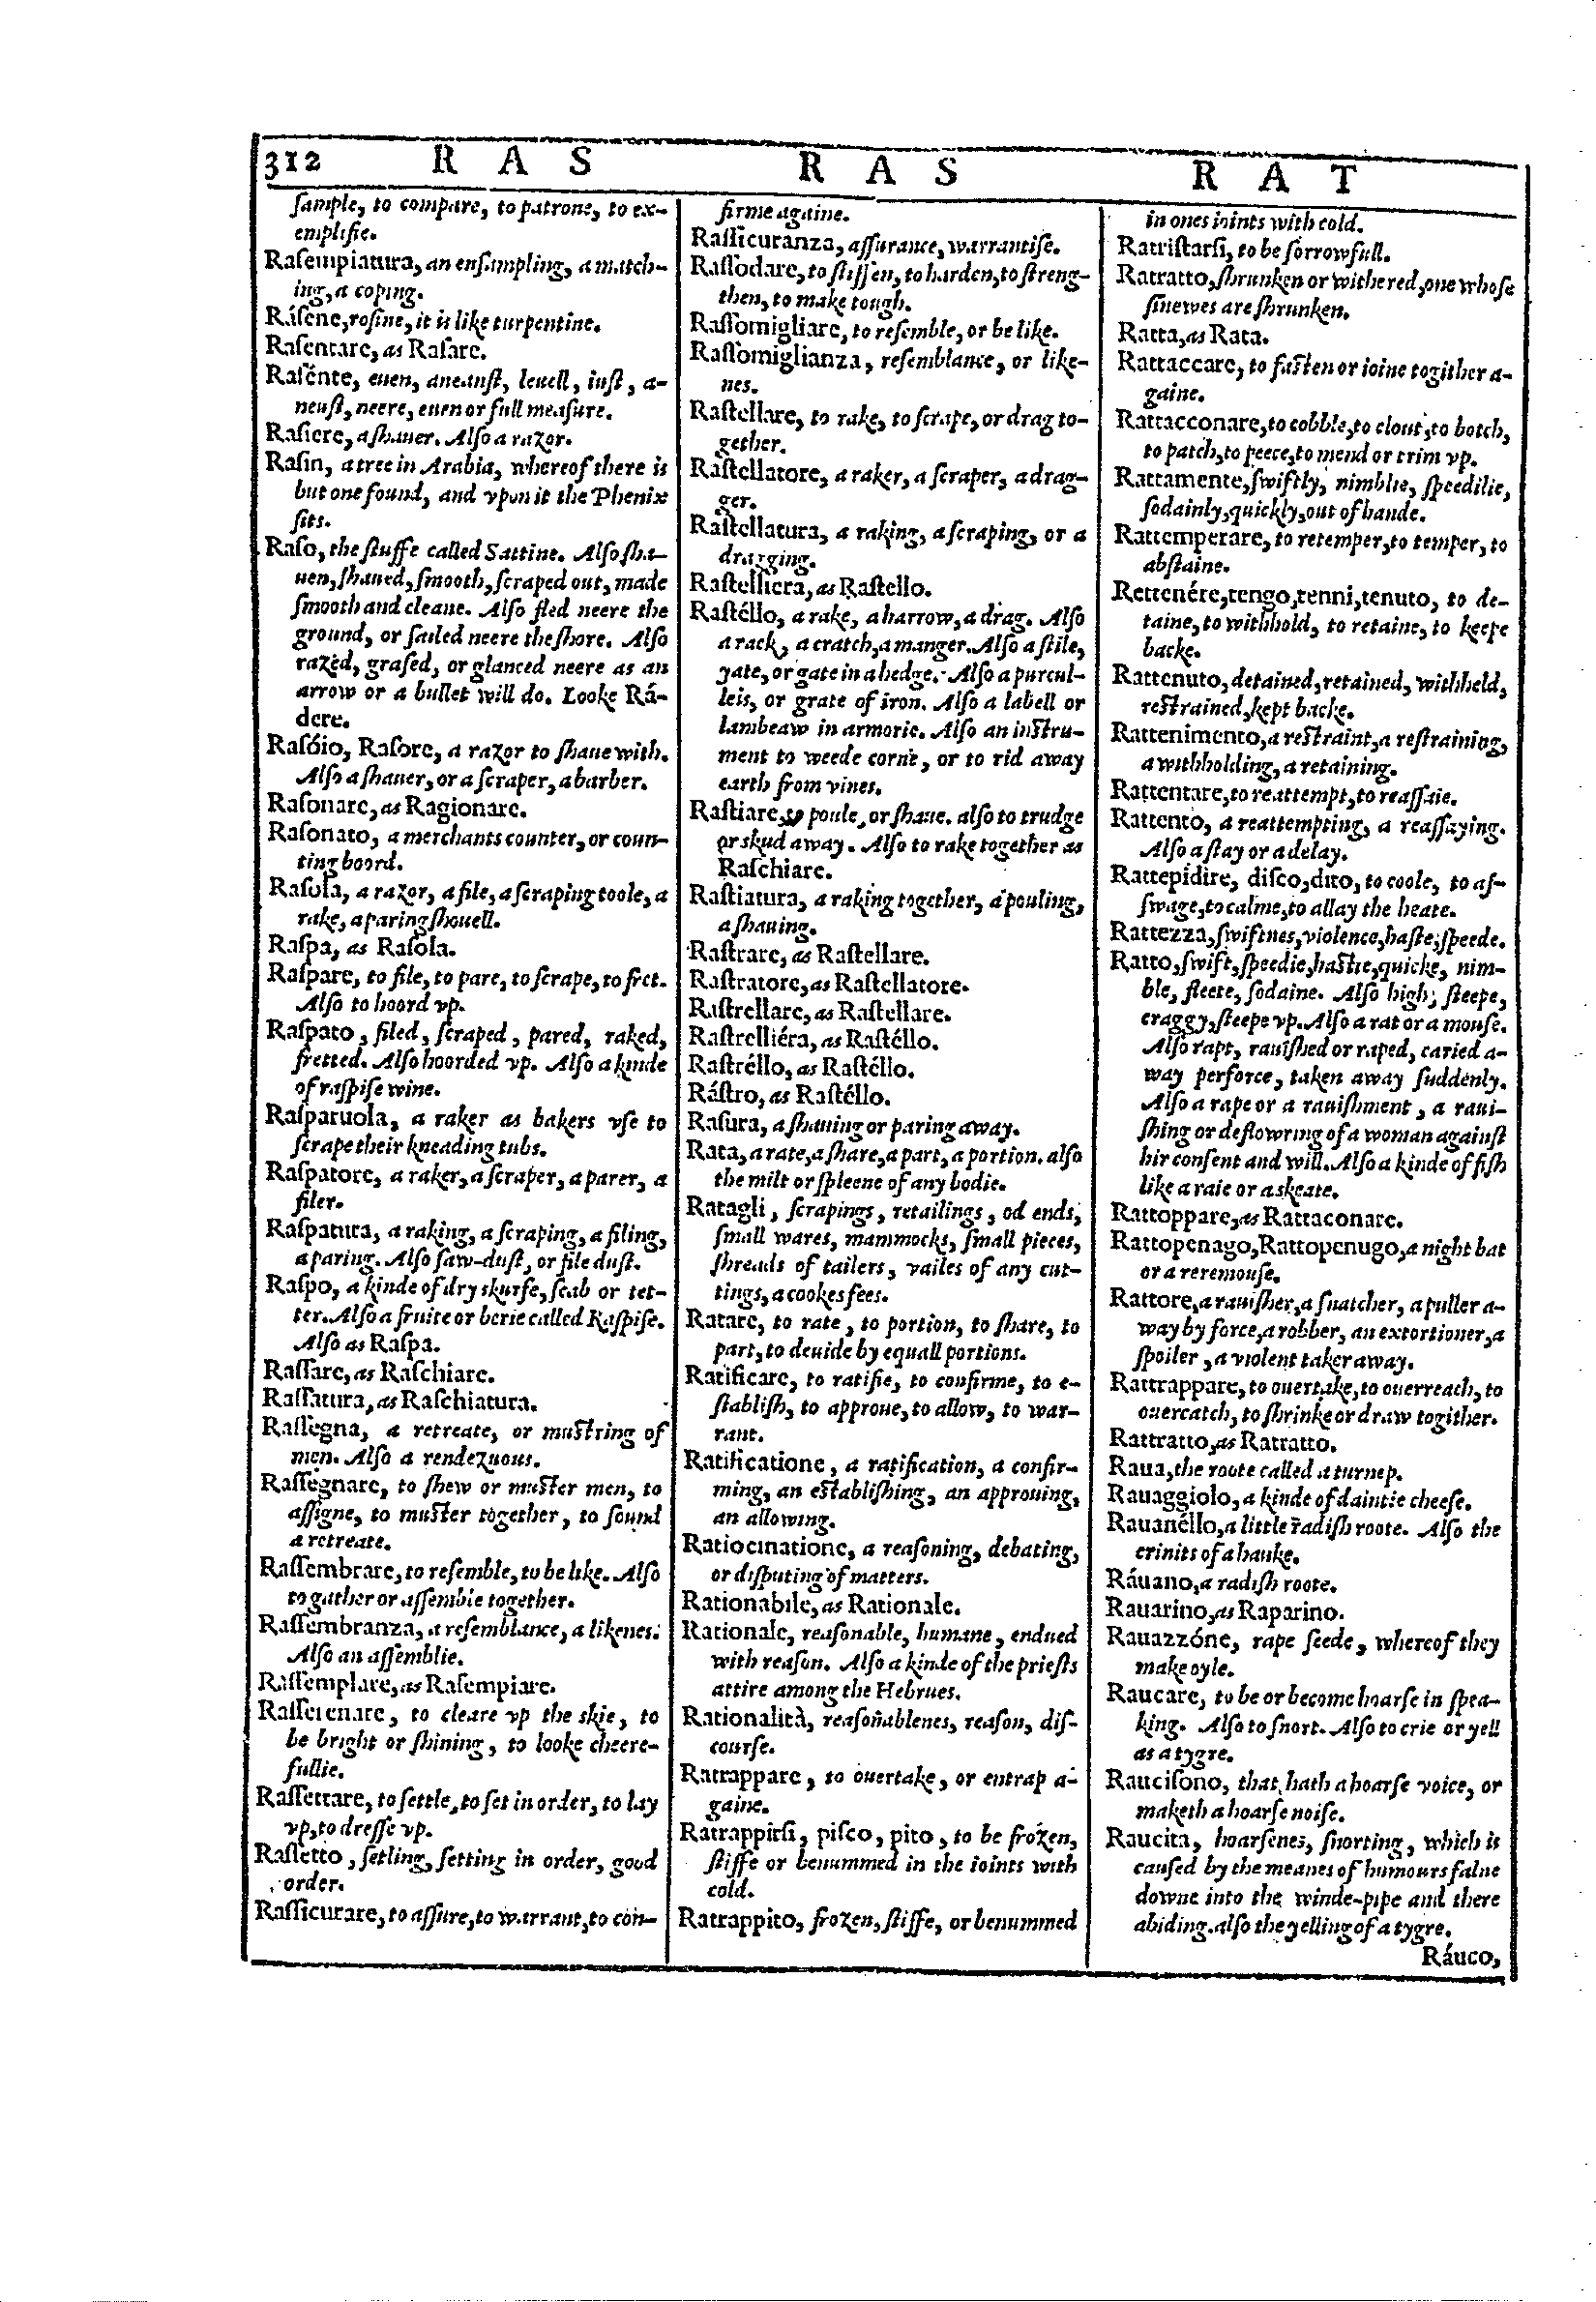 312 R A S R A S R A T
ſample, to compare, to patrone, to ex-
emplifie.
Raſempiatura, an enſampling, a match-
ing, a coping.
Ráſene, roſine, it is like turpentine.
Raſentare, as Raſare.
Raſénte, euen, aneanſt, leuell, iuſt, a-
neuſt, neere, euen or full meaſure.
Raſiere, a ſhauer. Alſo a razor.
Raſin, a tree in Arabia, whereof there is
but one found, and vpon it the Phenix
ſits.
Raſo, the ſtuffe called Sattine. Alſo ſha-
uen, ſhaued, ſmooth, ſcraped out, made
ſmooth and cleane. Alſo fled neere the
ground, or ſailed neere the ſhore. Alſo
razed, graſed, or glanced neere as an
arrow or a bullet will do. Looke Rá-
dere.
Raſóio, Raſore, a razor to ſhaue with.
Alſo a ſhauer, or a ſcraper, a barber.
Raſonare, as Ragionare.
Raſonato, a merchants counter, or coun-
ting boord.
Raſola, a razor, a file, a ſcraping toole, a
rake, a paring ſhouell.
Raſpa, as Raſola.
Raſpare, to file, to pare, to ſcrape, to fret.
Alſo to hoord vp.
Raſpato, filed, ſcraped, pared, raked,
fretted. Alſo hoorded vp. Alſo a kinde
of raſpiſe wine.
Raſparuola, a raker as bakers vſe to
ſcrape their kneading tubs.
Raſpatore, a raker, a ſcraper, a parer, a
filer.
Raſpatura, a raking, a ſcraping, a filing,
a paring. Alſo ſaw-duſt, or file duſt.
Raſpo, a kinde of dry skurfe, ſcab or tet-
ter. Alſo a fruite or berie called Raſpiſe.
Alſo as Raſpa.
Raſſare, as Raſchiare.
Raſſatura, as Raſchiatura.
Raſſegna, a retreate, or muſtring of
men. Alſo a rendezuous.
Raſſegnare, to ſhew or muſter men, to
aſſigne, to muſter together, to ſound
a retreate.
Raſſembrare, to reſemble, to be like. Alſo
to gather or aſſemble together.
Raſſembranza, a reſemblance, a likenes.
Alſo an aſſemblie.
Raſſemplare, as Raſempiare.
Raſſerenare, to cleare vp the skie, to
be bright or ſhining, to looke cheere-
fullie.
Raſſettare, to ſettle, to ſet in order, to lay
vp, to dreſſe vp.
Raſſetto, ſetling, ſetting in order, good
order.
Raſſicurare, to aſſure, to warrant, to con-
firme againe.
Raſſicuranza, aſſurance, warrantiſe.
Raſſodare, to ſtiffen, to harden, to ſtreng-
then, to make tough.
Raſſomigliare, to reſemble, or be like.
Raſſomiglianza, reſemblance, or like-
nes.
Raſtellare, to rake, to ſcrape, or drag to-
gether.
Raſtellatore, a raker, a ſcraper, a drag-
ger.
Raſtellatura, a raking, a ſcraping, or a
dragging.
Raſtelliera, as Raſtello.
Raſtéllo, a rake, a harrow, a drag. Alſo
a rack, a cratch, a manger. Alſo a ſtile,
yate, or gate in a hedge. Alſo a purcul-
leis, or grate of iron. Alſo a labell or
lambeaw in armorie. Alſo an inſtru-
ment to weede corne, or to rid away
earth from vines.
Raſtiare, to poule, or ſhaue. alſo to trudge
or skud away. Alſo to rake together as
Raſchiare.
Raſtiatura, a raking together, a pouling,
a ſhauing.
Raſtrare, as Raſtellare.
Raſtratore, as Raſtellatore.
Raſtrellare, as Raſtellare.
Raſtrelliéra, as Raſtéllo.
Raſtréllo, as Raſtéllo.
Ráſtro, as Raſtéllo.
Raſura, a ſhauing or paring away.
Rata, a rate, a ſhare, a part, a portion. alſo
the milt or ſpleene of any bodie.
Ratagli, ſcrapings, retailings, od ends,
ſmall wares, mammocks, ſmall pieces,
ſhreads of tailers, vailes of any cut-
tings, a cookes fees.
Ratare, to rate, to portion, to ſhare, to
part, to deuide by equall portions.
Ratificare, to ratifie, to confirme, to e-
ſtabliſh, to approue, to allow, to war-
rant.
Ratificatione, a ratification, a confir-
ming, an eſtabliſhing, an approuing,
an allowing.
Ratiocinatione, a reaſoning, debating,
or diſputing of matters.
Rationabile, as Rationale.
Rationale, reaſonable, humane, endued
with reaſon. Alſo a kinde of the prieſts
attire among the Hebrues.
Rationalità, reaſonablenes, reaſon, diſ-
courſe.
Ratrappare, to ouertake, or entrap a-
gaine.
Ratrappirſi, piſco, pito, to be frozen,
ſtiffe or benummed in the ioints with
cold.
Ratrappito, frozen, ſtiffe, or benummed
in ones ioints with cold.
Ratriſtarſi, to be ſorrowfull.
Ratratto, ſhrunken or withered, one whoſe
ſinewes are ſhrunken.
Ratta, as Rata.
Rattaccare, to faſten or ioine togither a-
gaine.
Rattacconare, to cobble, to clout, to botch,
to patch, to peece, to mend or trim vp.
Rattamente, ſwiftly, nimblie, ſpeedilie,
ſodainly, quickly, out of hande.
Rattemperare, to retemper, to temper, to
abſtaine.
Rettenére, tengo, tenni, tenuto, to de-
taine, to withhold, to retaine, to keepe
backe.
Rattenuto, detained, retained, withheld,
reſtrained, kept backe.
Rattenimento, a reſtraint, a reſtraining,
a withholding, a retaining.
Rattentare, to reattempt, to reaſſaie.
Rattento, a reattempting, a reaſſaying.
Alſo a ſtay or a delay.
Rattepidire, diſco, dito, to coole, to aſ-
ſwage, to calme, to allay the heate.
Rattezza, ſwiftnes, violence, haſte, ſpeede.
Ratto, ſwift, ſpeedie, haſtie, quicke, nim-
ble, fleete, ſodaine. Alſo high, ſteepe,
craggy, ſteepe vp. Alſo a rat or a mouſe.
Alſo rapt, rauiſhed or raped, caried a-
way perforce, taken away ſuddenly.
Alſo a rape or a rauiſhment, a raui-
ſhing or deflowring of a woman againſt
hir conſent and will. Alſo a kinde of fiſh
like a raie or a skeate.
Rattoppare, as Rattaconare.
Rattopenago, Rattopenugo, a night bat
or a reremouſe.
Rattore, a rauiſher, a ſnatcher, a puller a-
way by force, a robber, an extortioner, a
ſpoiler, a violent taker away.
Rattrappare, to ouertake, to ouerreach, to
ouercatch, to ſhrinke or draw togither.
Rattratto, as Ratratto.
Raua, the roote called a turnep.
Rauaggiolo, a kinde of daintie cheeſe.
Rauanéllo, a little radiſh roote. Alſo the
crinits of a hauke.
Ráuano, a radiſh roote.
Rauarino, as Raparino.
Rauazzóne, rape ſeede, whereof they
make oyle.
Raucare, to be or become hoarſe in ſpea-
king. Alſo to ſnort. Alſo to crie or yell
as a tygre.
Rauciſono, that hath a hoarſe voice, or
maketh a hoarſe noiſe.
Raucita, hoarſenes, ſnorting, which is
cauſed by the meanes of humours falne
downe into the winde-pipe and there
abiding. alſo the yelling of a tygre.
Ráuco,